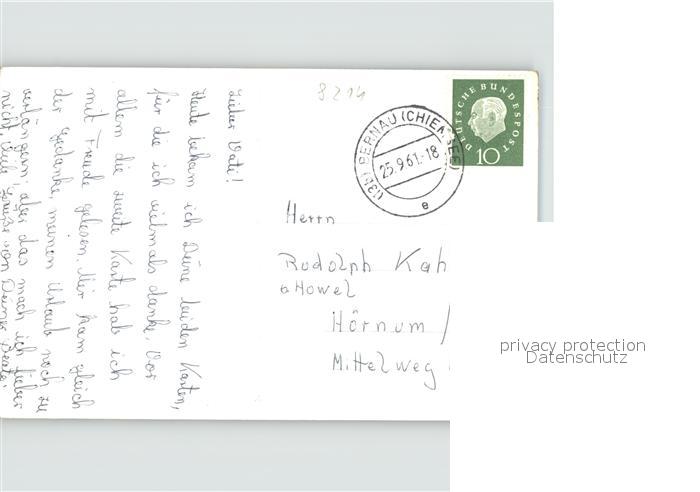 Lieber Vati!
Heute bekam ich Deine beiden Karten,
für die ich vielmals danke. Vor
allem die zweite Karte hab ich
mit Freude gelesen. Mir kam gleich
der Gedanke, meinen Urlaub noch zu
verlängern, aber das mach ich lieber
nicht. Grüße von Deiner Beate.
8214
DEUTSCHE BUNDESPOST
10
(13b) BERNAU (CHIEMSEE)
25.9.61.-18
e
Herrn
Rudolph Kah
Hörnum /
Mittelweg
privacy protection
Datenschutz